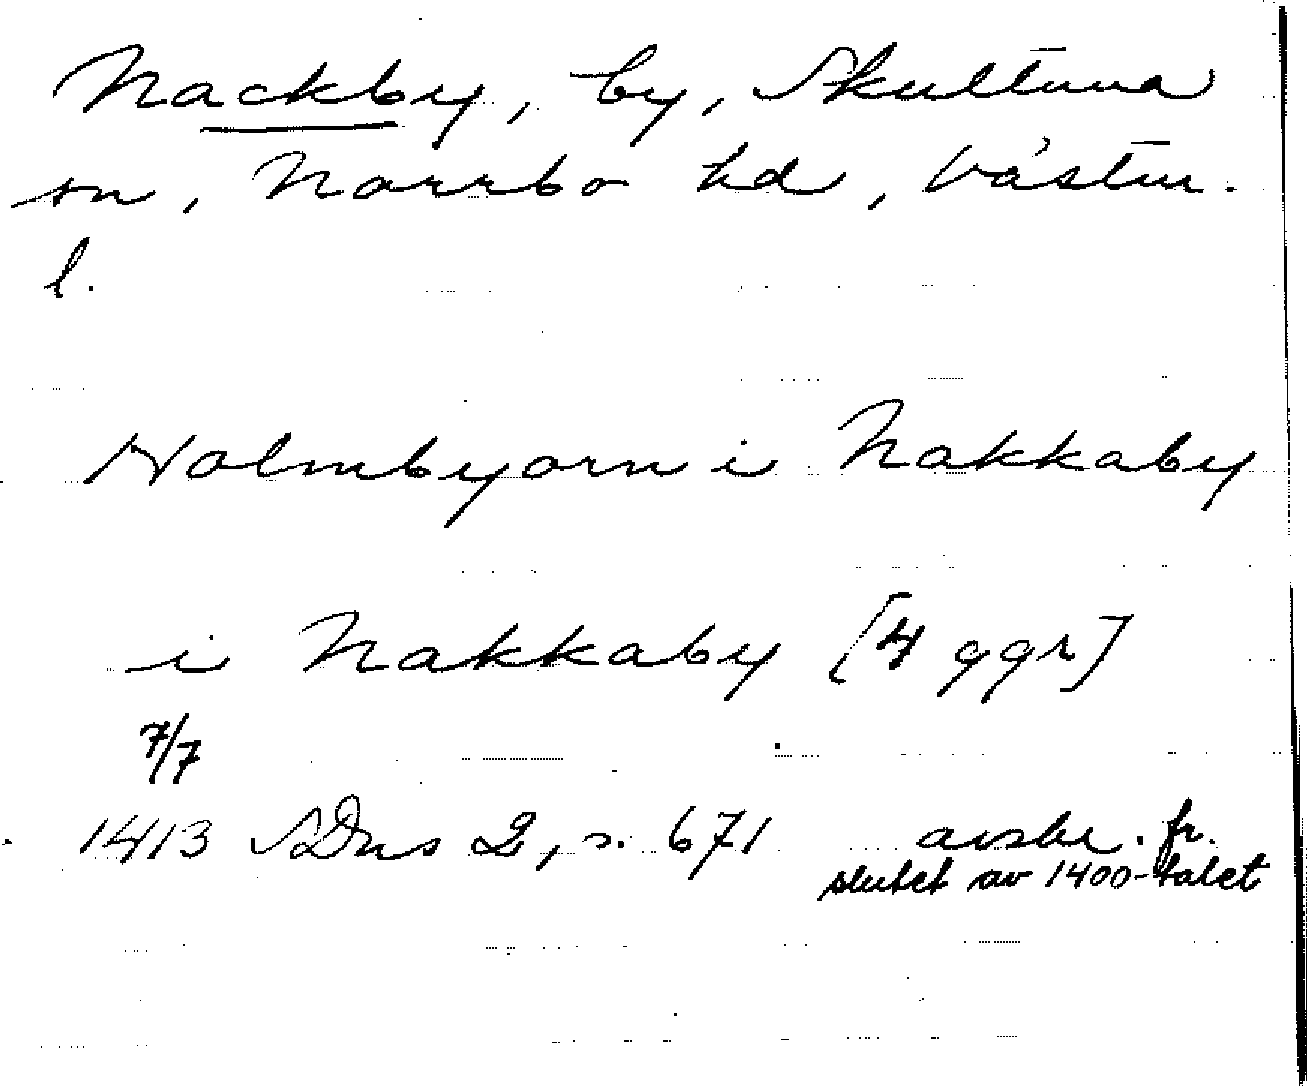 Nackby, by, Skultuna
sn, Norrbo hd, Västm.
l.
Holmbyorn i Nakkaby
i Nakkaby [4 ggr]
7/7
1413 SDns 2, s. 671 avskr. fr.
slutet av 1400-talet